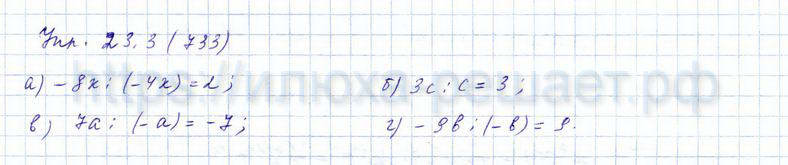 Упр. 23.3 (733)
а) -8x : (-4x) = 2; б) 3c : c = 3;
в) 7a : (-a) = -7; г) -9b : (-b) = 9.
https://илюха-решает.рф